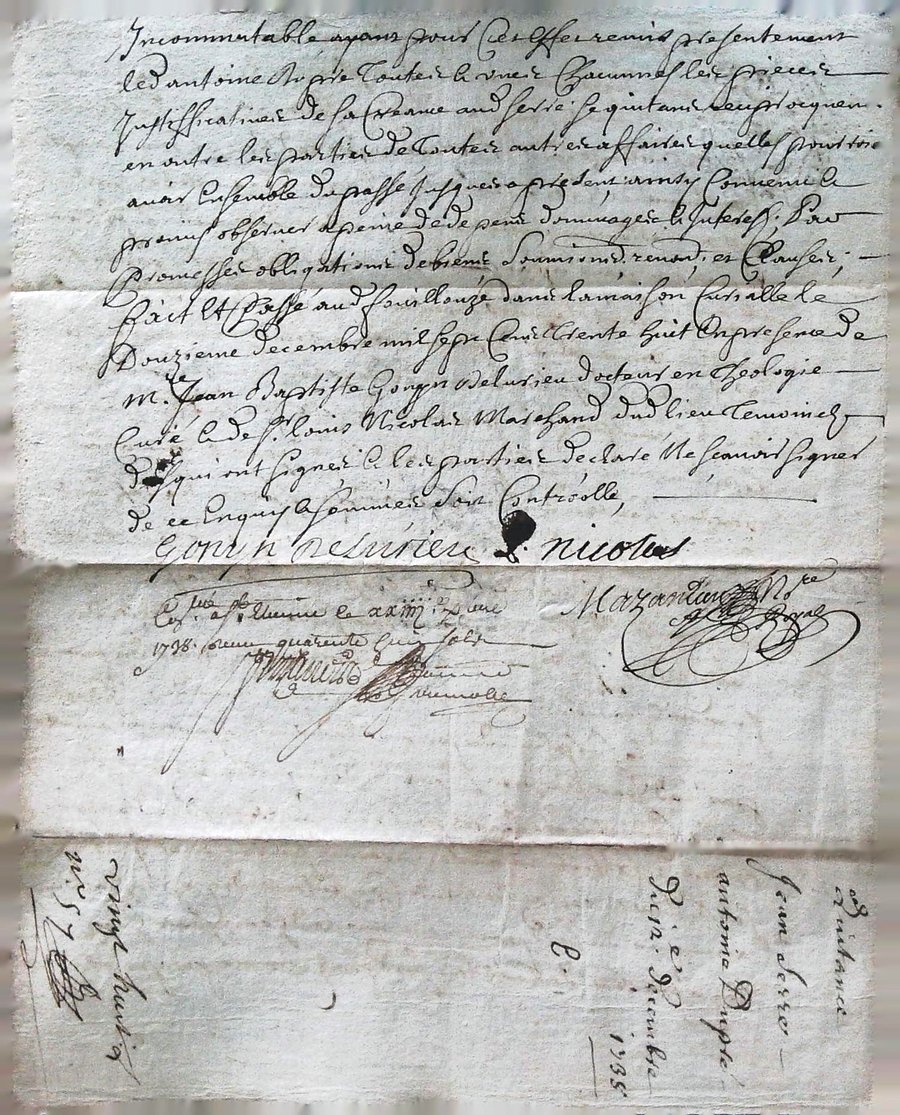 Incommutable ayant pour Cet Effet remis presentement
led antoine Dupré Toutes & unes Chacunnes les pieces
Justifficatives de sa Creance aud serre, se quittans reciproquem.
en outre les parties de Toutes autres affaires quelles pourroie
avoir Ensemble du passé Jusques a present, ainsy Convenu &
promis observer a peine de de pens dommages & Interest, Par
Promesses obligations de biens Soumions, renon, et Clauses, —
fait Et Passé aud fouillouze dans la maison Curialle le
Douzieme decembre mil sept Cens Trente huit En presence de
mre. Jean Baptiste Gonyn delurieu docteur en Theologie —
Curé & de Sr. Louis Nicolas Marchand dud lieu Temoins
qui ont signes & les parties declaré Ne scavoir signer
de ce Enquis & sommés soit Controolle,
Gonyn delurieu L. nicolas
Mazandier Nore
Royal
le xxiiij
1738. quarente huit sols
Quittance
Jean Serre
antoine Dupré
Du 12e Decembre
1738
vingt huit
no 57